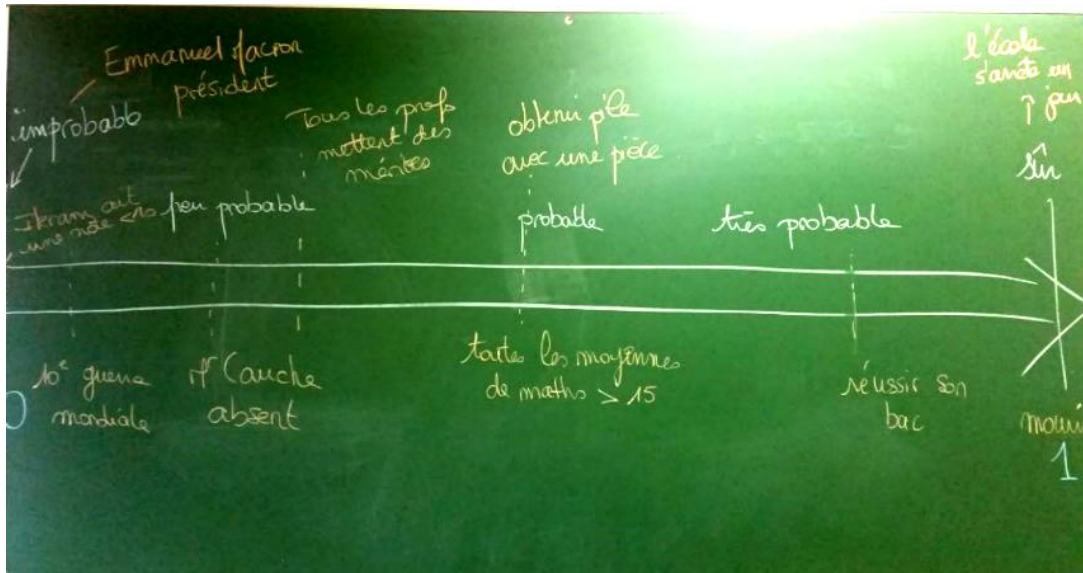 Emmanuel Macron
président
improbable
Tous les profs
mettent des
mérites
obtenir pile
avec une pièce
l'école
s'arrête un
jour
sûr
Ikram ait
une note <10
peu probable
probable
très probable
10e guerre
mondiale
Mr Cauche
absent
toutes les moyennes
de maths > 15
réussir son
bac
mouri
0
1